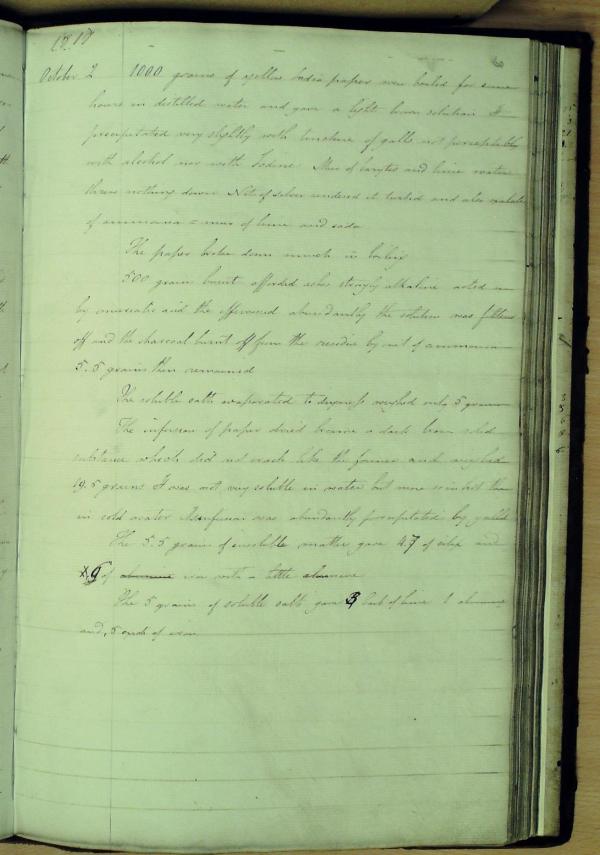 1818
6
October 2 1000 grains of yellow India paper were boiled for some
hours in distilled water and gave a light brown solution It
precipitated very slightly with tincture of galls not perceptibly
with alcohol nor with Iodine Mur of barytes and lime water
threw nothing down Nit of silver rendered it turbid and also oxalate
of ammonia = mur of lime and soda
The paper broke down much in boiling
500 grains burnt afforded ashes strongly alkaline acted on
by muriatic acid the effervesced abundantly the solution was filtered
off and the charcoal burnt off from the residue by nit of ammonia
5.5 grains then remained
The soluble salts evaporated to dryness weighed only 5 grains
The infusion of paper dried became a dark brown solid
substance which did not crack like the former and weighed
19.5 grains It was not very soluble in water but more so in hot than
in cold water Its infusion was abundantly precipitated by galls
The 5.5 grains of insoluble matter gave 4.7 of silex and
.9 of iron with a little alumine
The 5 grains of soluble salts gave 3 carb of lime 1 alumine
and .5 oxide of iron